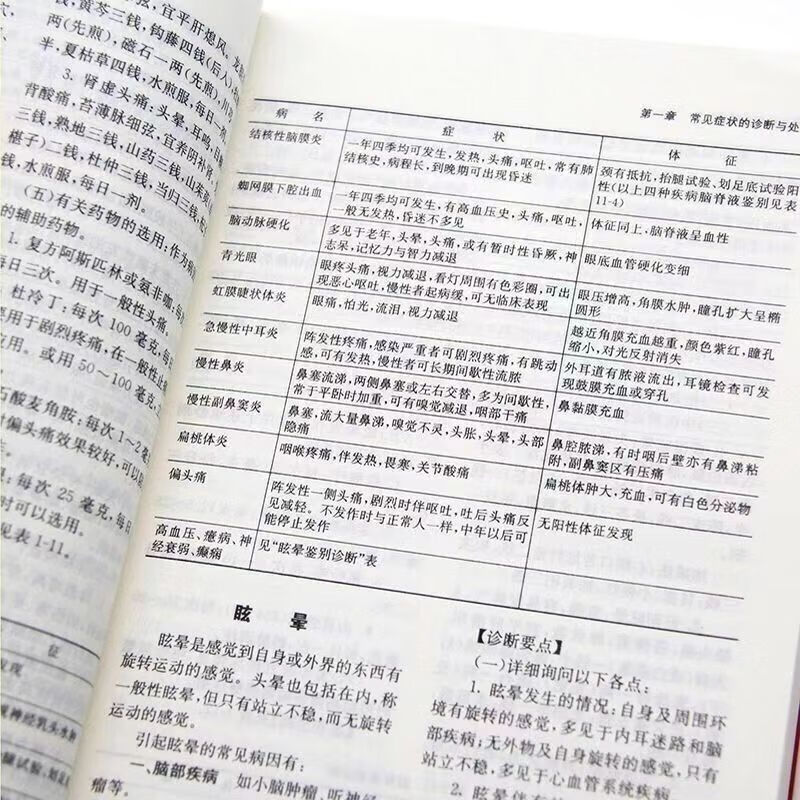 黄芩三钱,钩藤四钱(后入)
两(先煎),磁石一两(先煎),川
半,夏枯草四钱,水煎服,每日一
3. 肾虚头痛:头晕,耳鸣,目
背酸痛,苔薄脉细弦,宜养阴补肾,
三钱,熟地三钱,山药三钱,山茱萸
椹子)二钱,杜仲三钱,当归三钱,
钱,水煎服,每日一剂。
(五)有关药物的选用:作为
的辅助药物。
1. 复方阿斯匹林或氨非咖:每
每日三次。用于一般性头痛。
2. 杜冷丁:每次 100 毫克,每
用于剧烈疼痛,在一般性止
或用 50~100 毫克,
酸麦角胺:每次 1~2 毫
对偏头痛效果较好,可以
每次 25 毫克,每日
时可以选用。
见表 1-11。
征
第一章 常见症状的诊断与处
病 名 症 状 体 征
结核性脑膜炎 一年四季均可发生,发热,头痛,呕吐,常有肺 颈有抵抗,抬腿试验、划足底试验阳
结核史,病程长,到晚期可出现昏迷 性(以上四种疾病脑脊液鉴别见表
11-4)
蜘网膜下腔出血 一年四季均可发生,有高血压史,头痛,呕吐, 体征同上,脑脊液呈血性
一般无发热,昏迷不多见
脑动脉硬化 多见于老年,头晕,头痛,或有暂时性昏厥,神 眼底血管硬化变细
志呆,记忆力与智力减退
青光眼 眼疼头痛,视力减退,看灯周围有色彩圈,可出 眼压增高,角膜水肿,瞳孔扩大呈椭
现恶心呕吐,慢性者起病缓,可无临床表现 圆形
虹膜睫状体炎 眼痛,怕光,流泪,视力减退 越近角膜充血越重,颜色紫红,瞳孔
缩小,对光反射消失
急慢性中耳炎 阵发性疼痛,感染严重者可剧烈疼痛,有跳动 外耳道有脓液流出,耳镜检查可发
感,可有发热,慢性者可长期间歇性流脓 现鼓膜充血或穿孔
慢性鼻炎 鼻塞流涕,两侧鼻塞或左右交替,多为间歇性, 鼻黏膜充血
常于平卧时加重,可有嗅觉减退,咽部干痛
慢性副鼻窦炎 鼻塞,流大量鼻涕,嗅觉不灵,头胀,头晕,头部 鼻腔脓涕,有时咽后壁亦有鼻涕粘
隐痛 附,副鼻窦区有压痛
扁桃体炎 咽喉疼痛,伴发热,畏寒,关节酸痛 扁桃体肿大,充血,可有白色分泌物
偏头痛 阵发性一侧头痛,剧烈时伴呕吐,吐后头痛反 无阳性体征发现
见减轻。不发作时与正常人一样,中年以后可
能停止发作
高血压、癔病、神 见“眩晕鉴别诊断”表
经衰弱、癫痫
眩 晕
眩晕是感觉到自身或外界的东西有
旋转运动的感觉。头晕也包括在内,称
一般性眩晕,但只有站立不稳,而无旋转
运动的感觉。
引起眩晕的常见病因有:
一、脑部疾病 如小脑肿瘤、听神经
瘤等。
【诊断要点】
(一)详细询问以下各点:
1. 眩晕发生的情况:自身及周围环
境有旋转的感觉,多见于内耳迷路和脑
部疾病;无外物及自身旋转的感觉,只有
站立不稳,多见于心血管系统疾病
2. 眩晕伴有